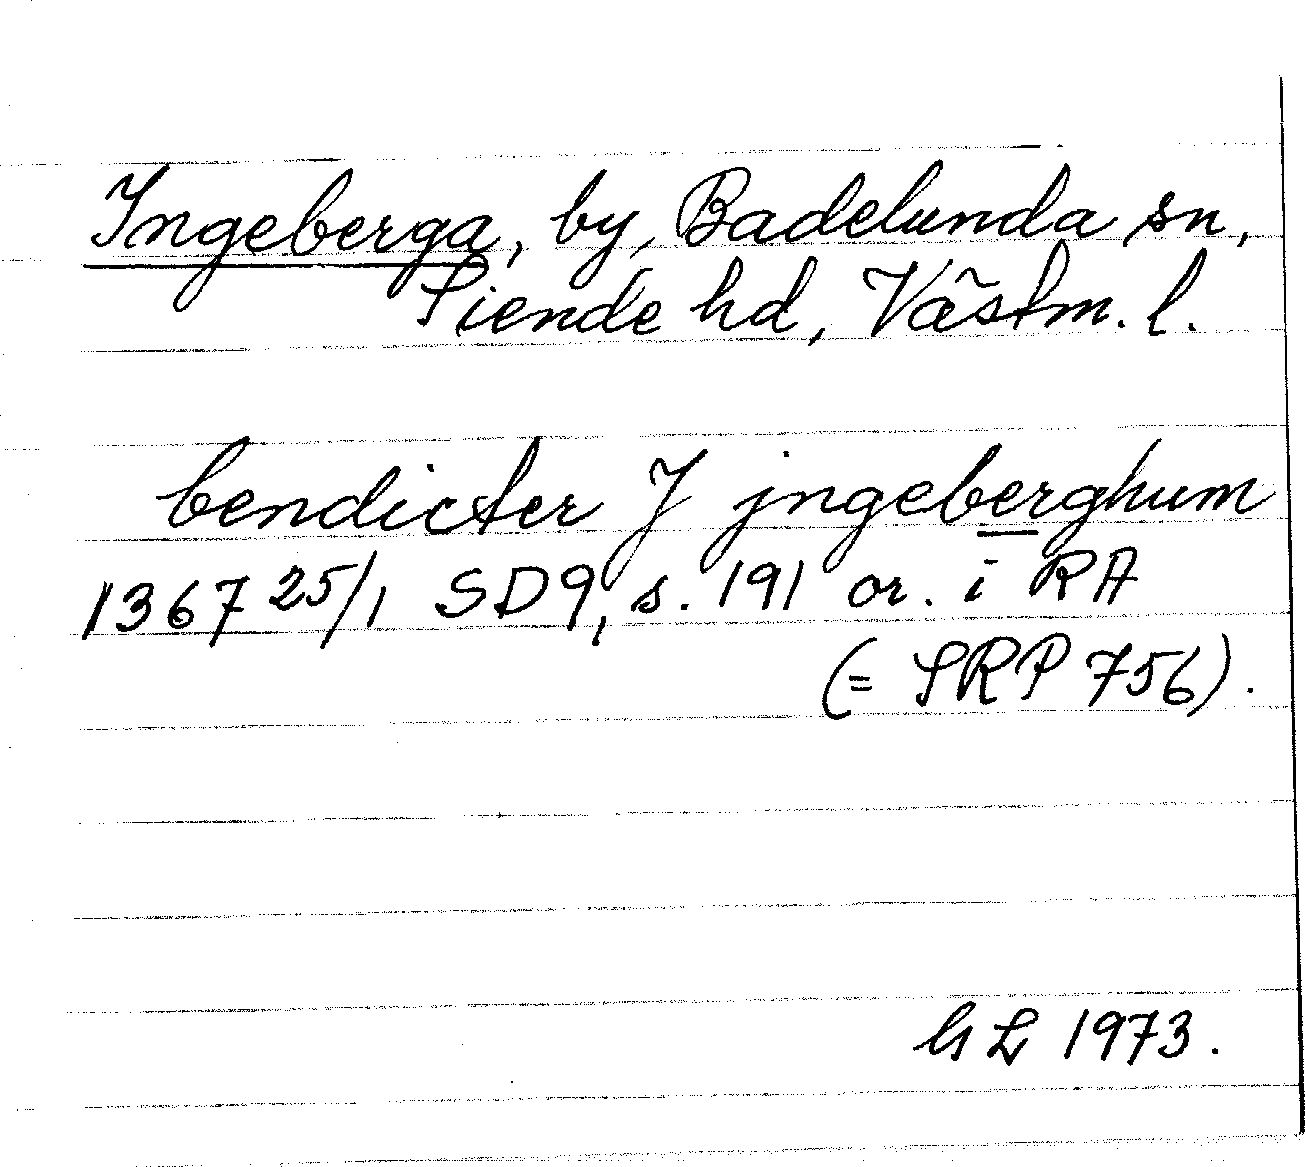 Ingeberga, by, Badelunda sn,
Siende hd, Västm. l.
bendicter J jngeberghum
1367 25/1 SD9, s. 191 or. i RA
(= SRP 756).
GL 1973.